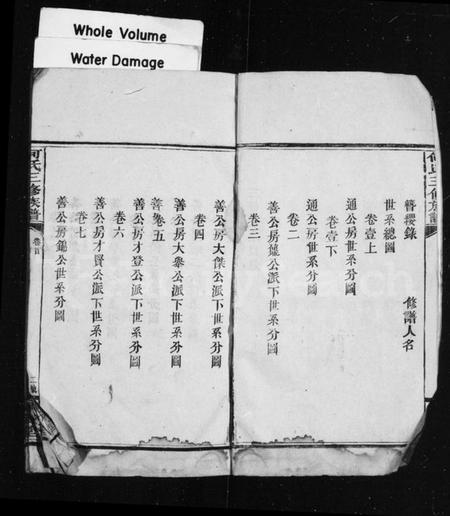 Whole Volume
Water Damage
簪纓錄 修譜人名
世系總圖
卷壹上
通公房世系分圖
卷壹下
通公房世系分圖
卷二
善公房鑑公派下世系分圖
卷三
善公房大傑公派下世系分圖
卷四
善公房大舉公派下世系分圖
善卷五
善公房才登公派下世系分圖
卷六
善公房才賢公派下世系分圖
卷七
善公房鑑公世系分圖
何氏三修族譜
卷首